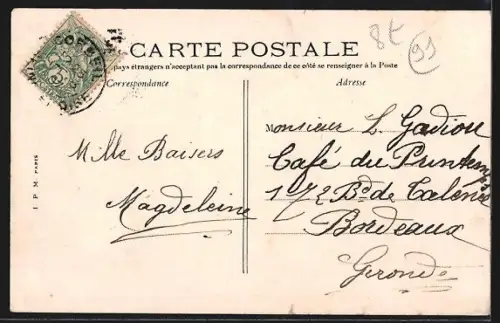 CARTE POSTALE
8t
91
pays étrangers n'acceptant pas la correspondance de ce côté se renseigner à la Poste
Correspondance
Adresse
CORBEIL
ET-OISE
Mille Baisers
Magdeleine
Monsieur L. Gadiou
Café du Printemps
172 Bd de Talence
Bordeaux
Gironde
I P M PARIS